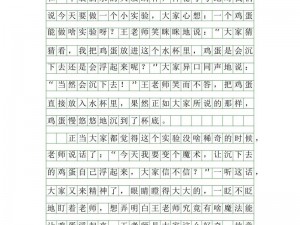 说今天要做一个小实验，大家心想：一个鸡蛋
能做啥实验呀？王老师笑眯眯地说：“大家猜
猜看，我把鸡蛋放进这个水杯里，鸡蛋会沉
下去还是会浮起来呢？”大家异口同声地说：
“当然会沉下去！”王老师笑而不答，把鸡蛋
直接放入水杯里，果然正如大家所说的那样，
鸡蛋慢悠悠地沉到了杯底。
正当大家都觉得这个实验没啥稀奇的时候，
老师说话了：“今天我要变个魔术。让沉下去
的鸡蛋自己浮起来，大家信不信？”一听这话，
大家又来精神了，眼睛瞪得大大的，一眨不眨
地盯着老师，想弄明白王老师究竟有啥魔法能